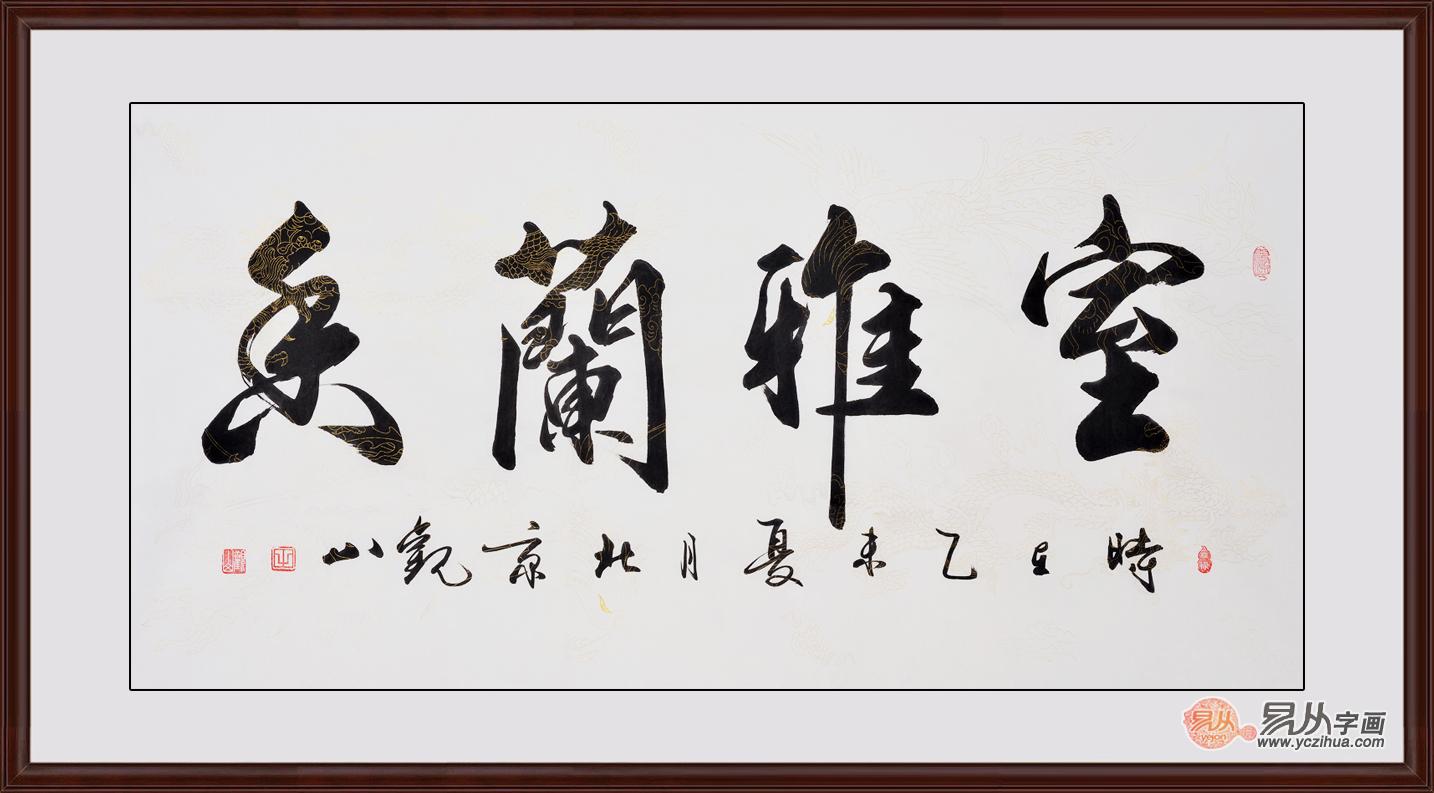 室雅蘭香
時在乙未夏月北京觀山
易从字画
yejon
www.yczihua.com